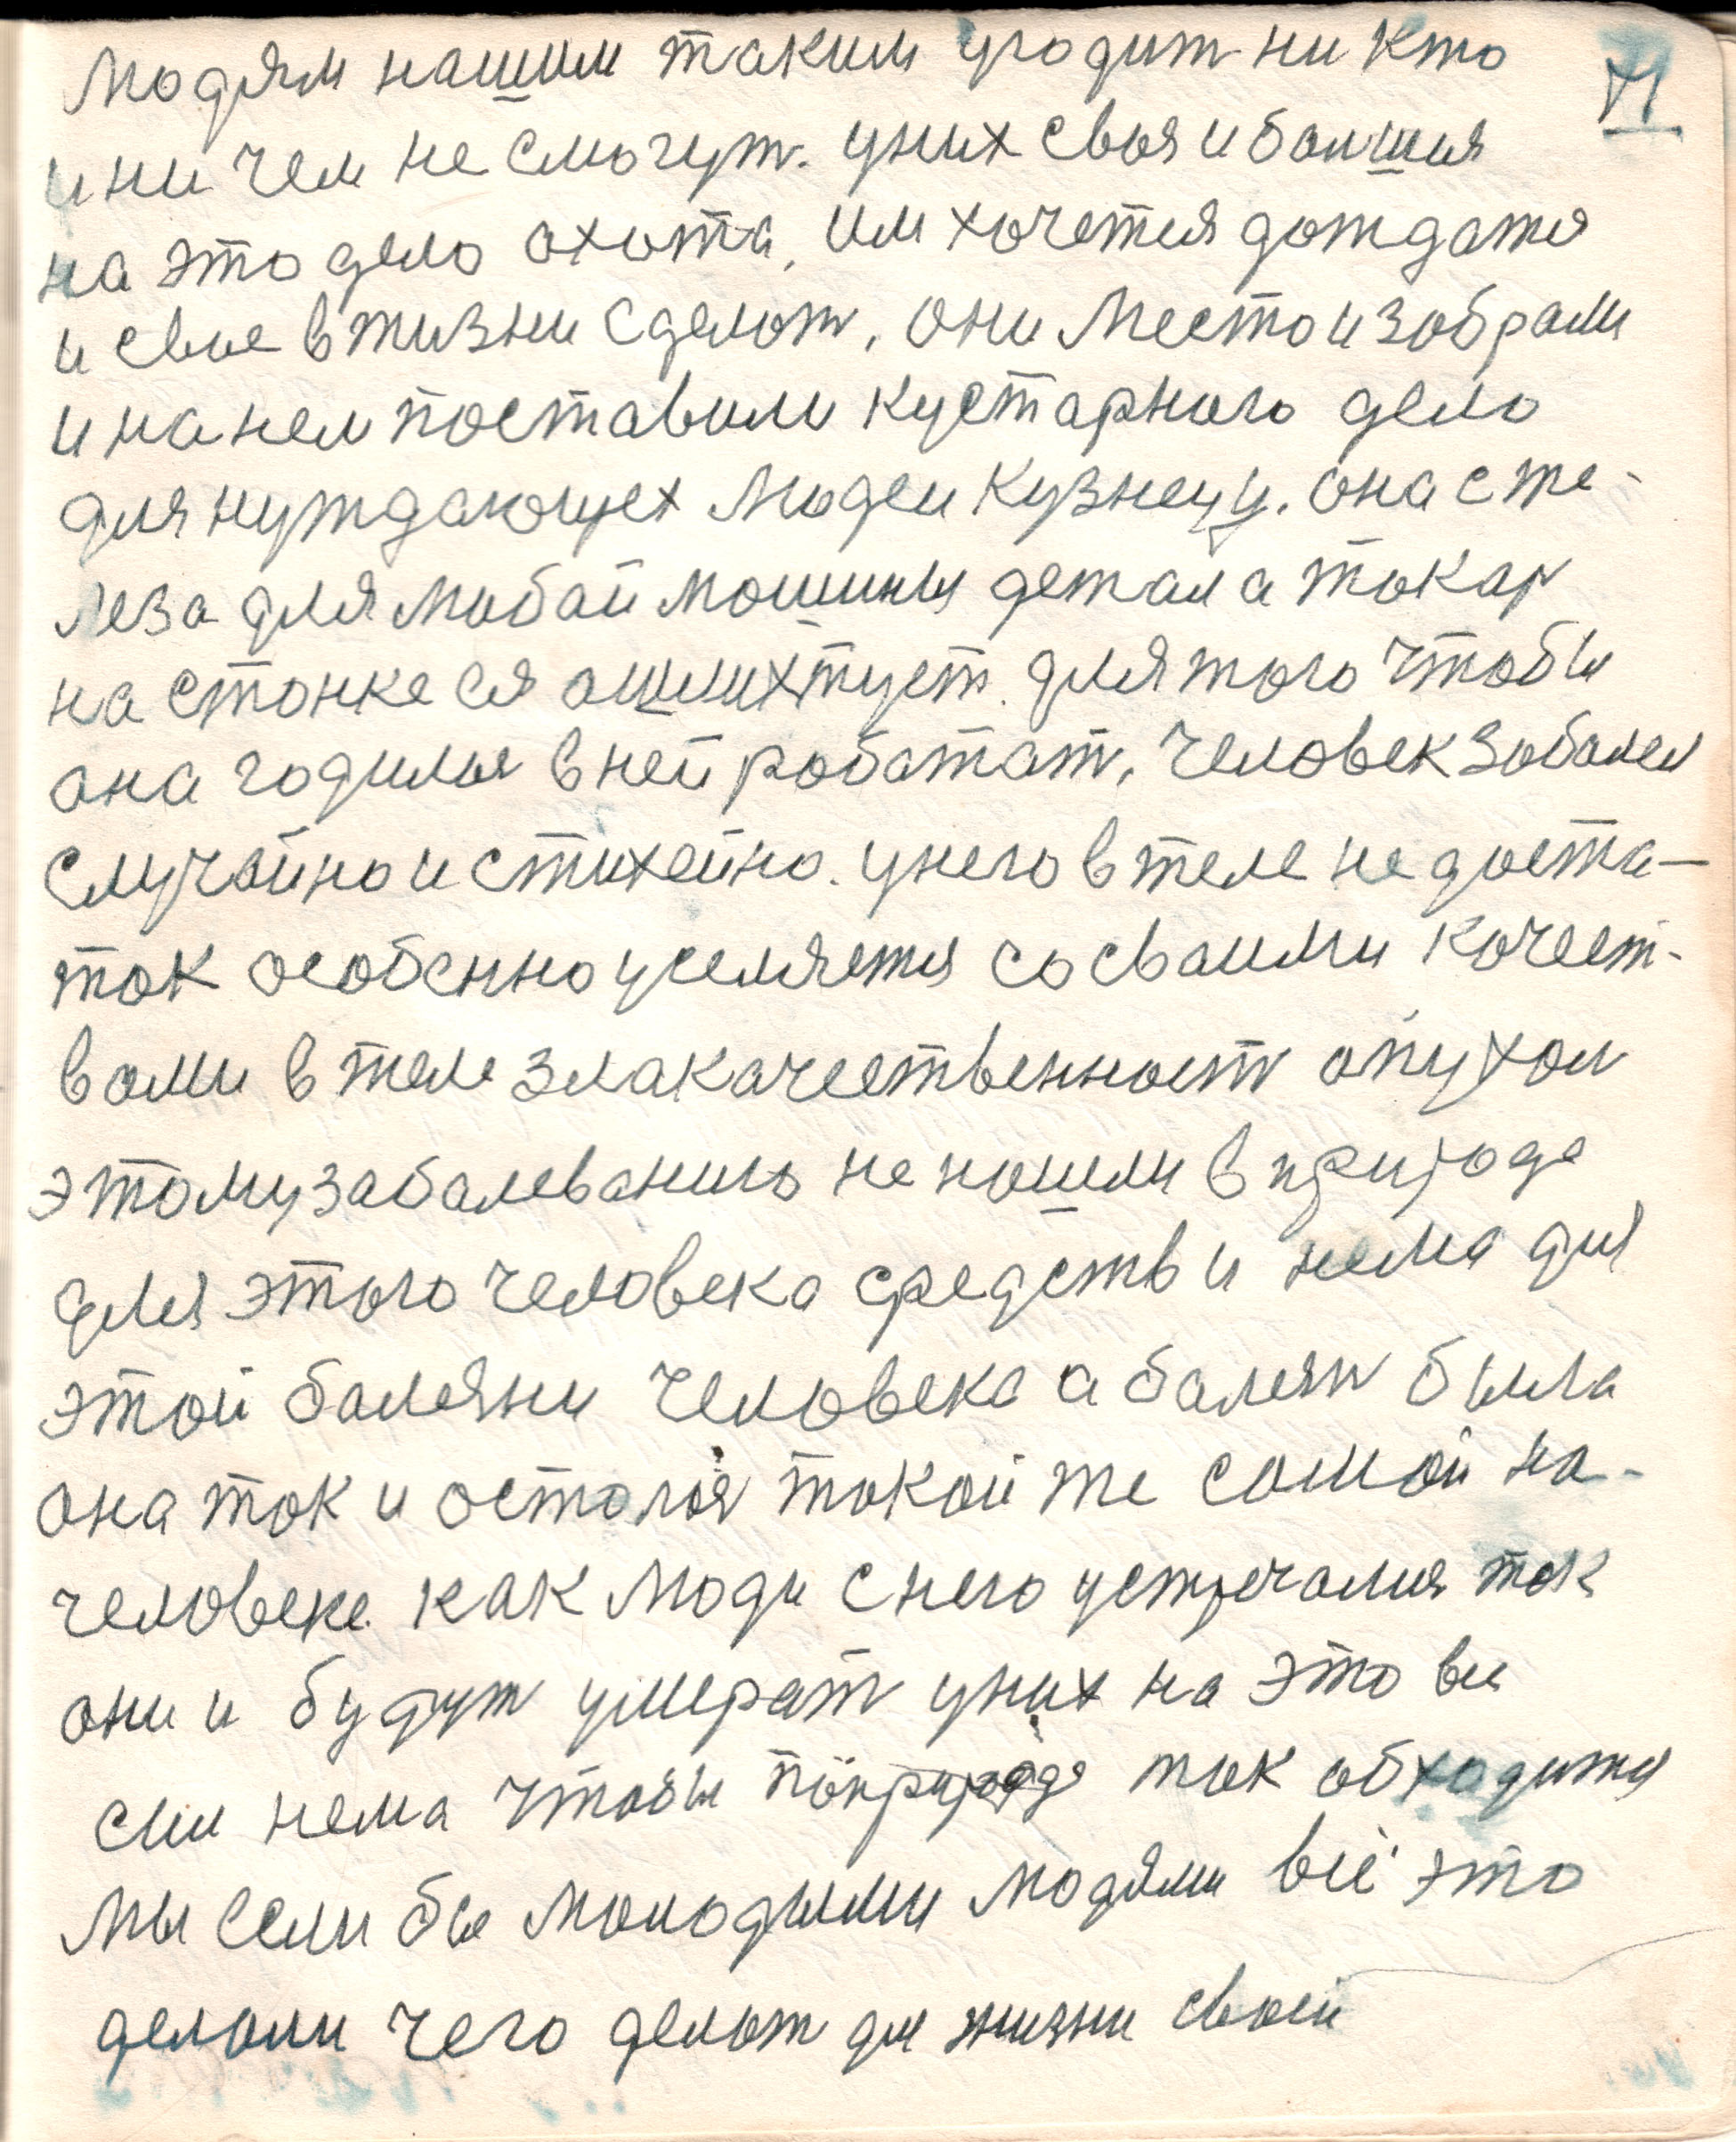 71
Людям нашим таким угодит ни кто
и ни чем не смогут. уних своя и болшия
на это дело охота, им хочетця дождатця
и свое в жизни сделот, они место изобрали
и на нем поставили кустарного дело
для нуждающех людеи кузнецу. она с же-
леза для любай мошины детал а токар
на стонке ея ошлихтует. для того чтобы
она годилыя в ней роботат, человек зоболел
случойно и стихейно. унего в теле недоста-
ток особенно уселяетця со сваими кочест-
воми в теле злакачественност опухол
этому заболеванию не ношли в природе
для этого человека средств и нема для
этой балезни человека а балезн была
она ток и осталоя токой же сомой на-
человеке как люди снего устречолия ток
они и будут умерат уних на это вси
сил нема чтобы по природе ток обходитця
мы если бы молодыми людями всё это
делоли чего делот для жизни своей